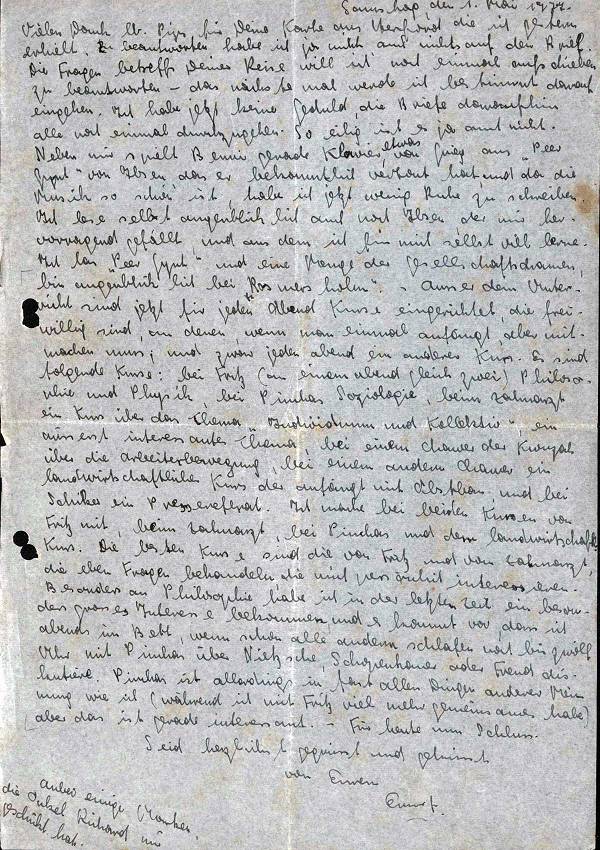 Samstag, den 1. Mai
Vielen Dank lb. Pips für Deine Karte aus die ich gestern
erhielt. Zu beantworten habe ich ja nichts auf den Brief.
Die Fragen betreff Deiner Reise will ich noch einmal aufschieben
zu beantworten – das nächste mal werde ich bestimmt darauf
eingehen. Ich habe jetzt keine Geduld, die Briefe daraufhin
alle noch einmal durchzugehen. So eilig ist es ja auch nicht.
Neben mir spielt Benni gerade Klavier, etwas von Grieg aus "Peer
Gynt" von Ibsen, das er bekanntlich vertont hat, und da die
Musik so schön ist, habe ich jetzt wenig Ruhe zu schreiben.
Ich lese selbst augenblicklich auch noch Ibsen der mir her-
vorragend gefällt, und aus dem ich für mich selbst viel lerne.
Ich las "Peer Gynt" und eine Menge der Gesellschaftsdramen,
bin augenblicklich bei "Rosmersholm". – Ausser dem Unter-
richt sind jetzt für jeden Abend Kurse eingerichtet, die frei-
willig sind, an denen, wenn man einmal anfängt, aber mit-
machen muss; und zwar jeden abend ein anderer Kurs. Es sind
folgende Kurse: bei Fritz (an einem abend gleich zwei) Philoso-
phie und Physik, bei Pinchas Soziologie, beim Zahnarzt
ein Kurs über das Thema "Individuum und Kollektiv", ein
äusserst interessantes Thema, bei einem Chawer der Kwuzah
über die Arbeiterbewegung, bei einem andern Chawer ein
landwirtschaftlicher Kurs der anfängt mit Obstbau und bei
ein Pressereferat. Ich mache bei beiden Kursen von
Fritz mit, beim Zahnarzt, bei Pinchas und dem landwirtschaftl.
Kurs. Die besten Kurse sind die von Fritz und vom Zahnarzt
die eben Fragen behandeln die mich persönlich interessieren.
Besonders an Philosophie habe ich in der letzten Zeit ein beson-
ders grosses Interesse bekommen und es kommt vor, dass ich
abends im Bett, wenn schon alle andern schlafen noch bis zwölf
Uhr mit Pinchas über Nietzsche, Schopenhauer oder Freud dis-
kutiere. Pinchas ist allerdings in fast allen Dingen anderer Mei
nung wie ich (während ich mit Fritz viel mehr gemeinsames habe)
aber das ist gerade interessant. – Für heute nun Schluss.
Seid herzlichst gegrüsst und geküsst
von Euren
Ernst.
anbei einige Marken,
die Onkel Richard mir
geschickt hat.